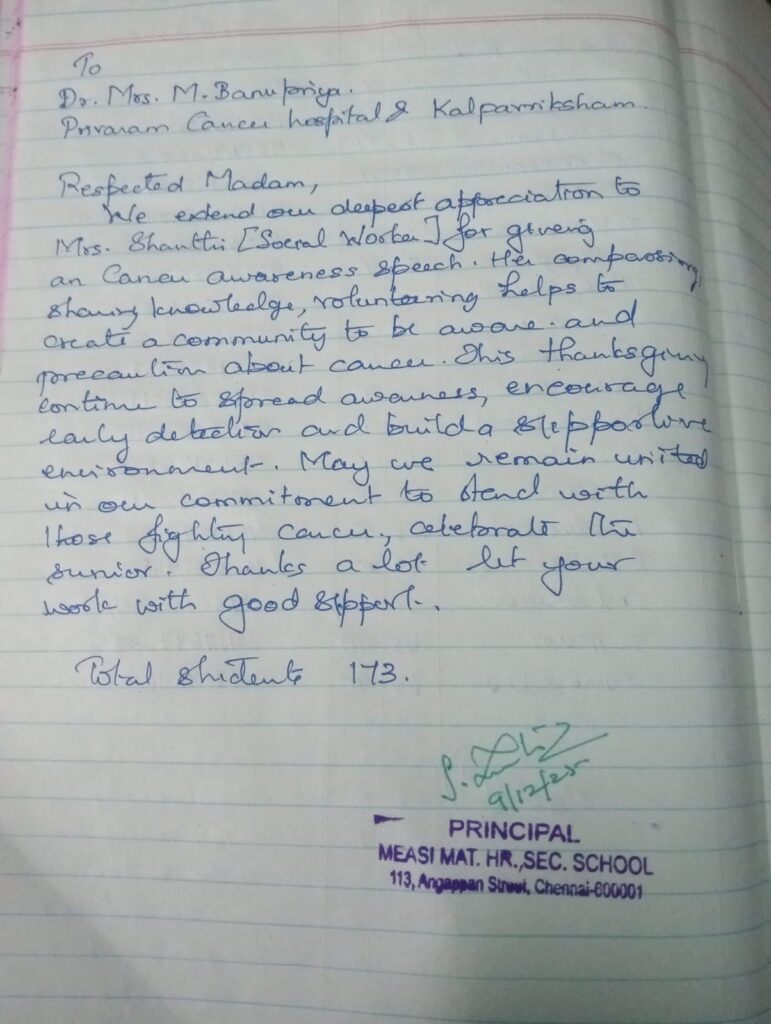 To
Dr. Mrs. M. Banupriya.
Privaram Cancer hospital & Kalpavriksham.
Respected Madam,
We extend our deepest appreciation to
Mrs. Shanthi [Social Worker] for giving
an Cancer awareness speech. Her compassion,
sharing knowledge, volunteering helps to
create a community to be aware and
precaution about cancer. This thanksgiving
continue to spread awareness, encourage
early detection and build a supportive
environment. May we remain united
in our commitment to stand with
those fighting cancer, celebrate the
. Thanks a lot let your
work with good support.
Total students 173.
9/12/25
PRINCIPAL
MEASI MAT. HR.,SEC. SCHOOL
113, Angappan Street, Chennai-600001